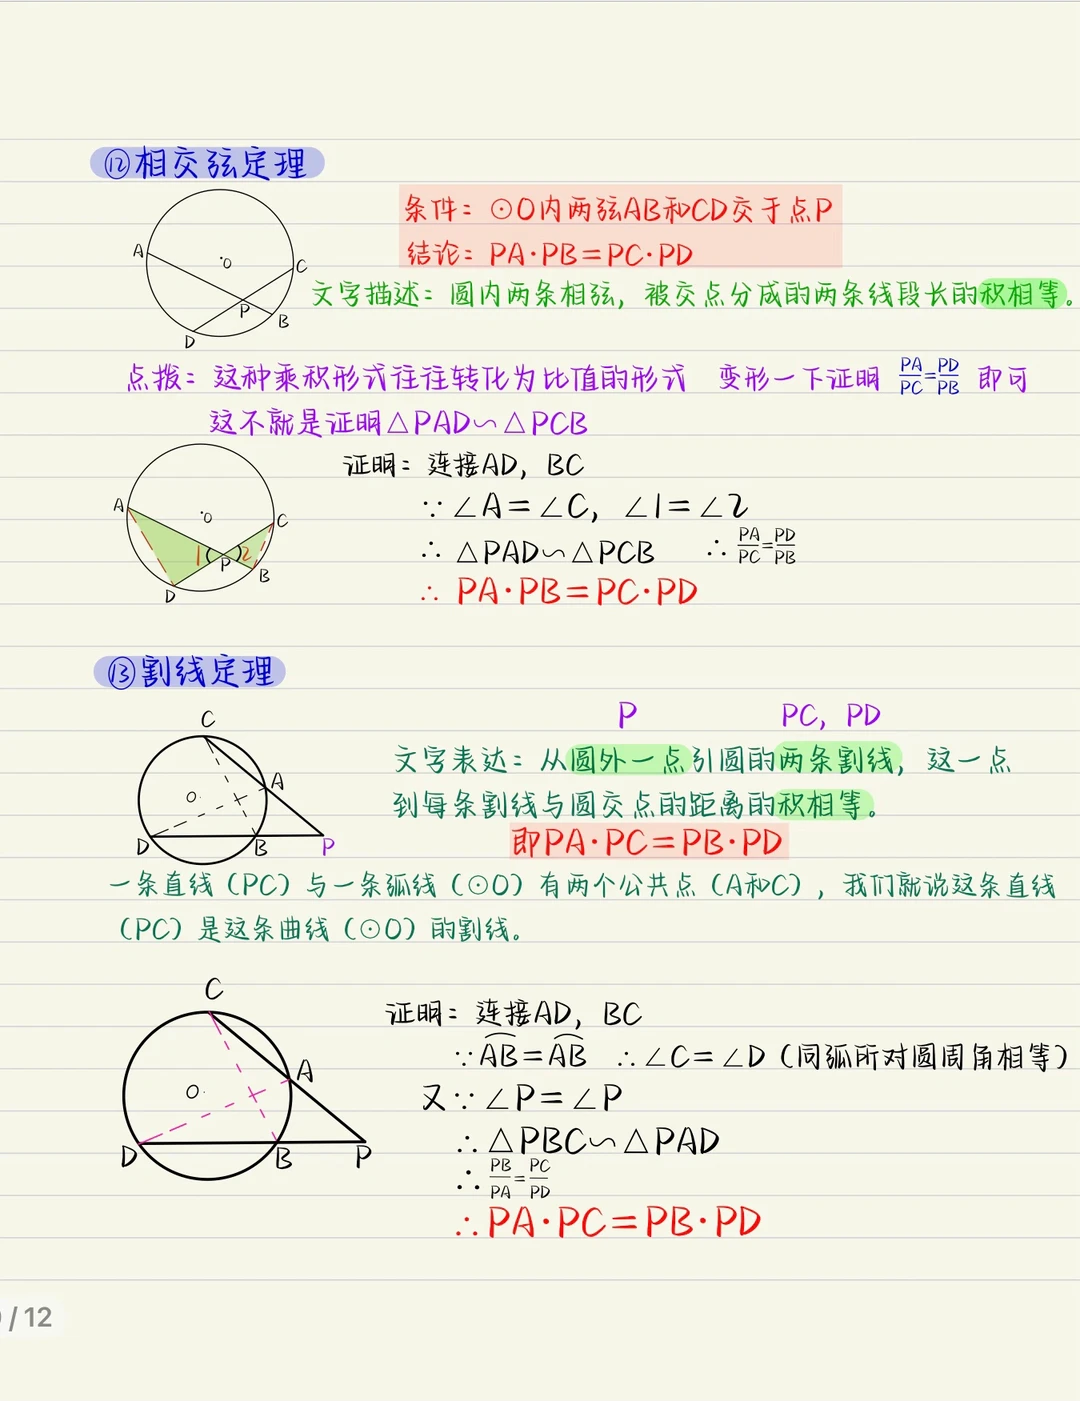 ⑫相交弦定理
条件：⊙O内两弦AB和CD交于点P
结论：PA·PB=PC·PD
A O C P B D
文字描述：圆内两条相弦，被交点分成的两条线段长的积相等。
点拨：这种乘积形式往往转化为比值的形式 变形一下证明 PA/PC=PD/PB 即可
这不就是证明△PAD∽△PCB
A O C 1 P 2 B D
证明：连接AD，BC
∵∠A=∠C，∠1=∠2
∴ △PAD∽△PCB ∴ PA/PC=PD/PB
∴ PA·PB=PC·PD
⑬割线定理
C A O D B P
P PC，PD
文字表达：从圆外一点引圆的两条割线，这一点
到每条割线与圆交点的距离的积相等。
即PA·PC=PB·PD
一条直线（PC）与一条弧线（⊙O）有两个公共点（A和C），我们就说这条直线
（PC）是这条曲线（⊙O）的割线。
C A O D B P
证明：连接AD，BC
∵A͡B=A͡B ∴∠C=∠D（同弧所对圆周角相等）
又∵∠P=∠P
∴△PBC∽△PAD
∴ PB/PA=PC/PD
∴PA·PC=PB·PD
/12